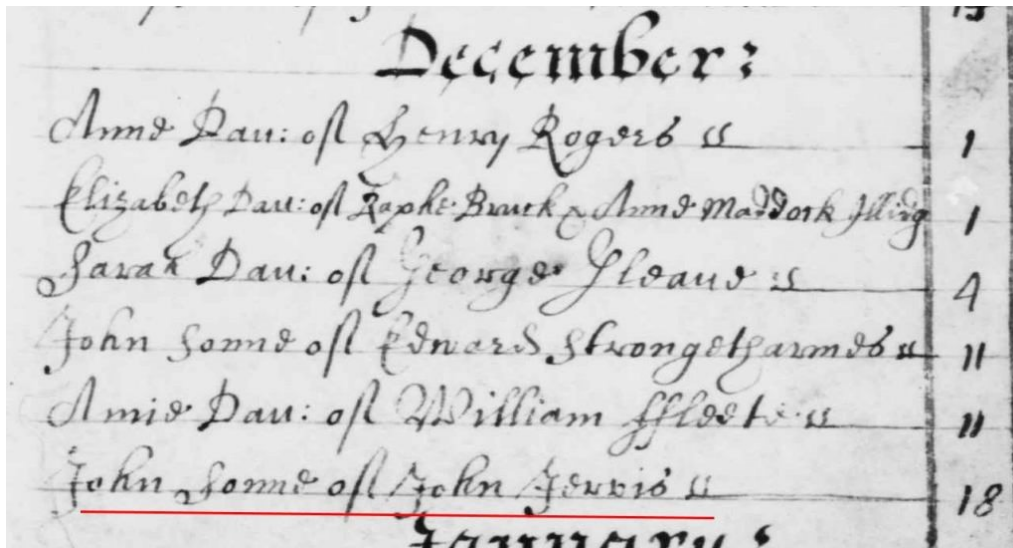 December:
Anne Dau: of Henry Rogers 1
Elizabeth Dau: of Raphe Bruck & Anne Maddock Illeg 1
Sarah Dau: of George Cleaue 4
John Sonne of Edward Strongetharmes 11
Amie Dau: of William ffleete 11
John Sonne of John Jervis 18
January: